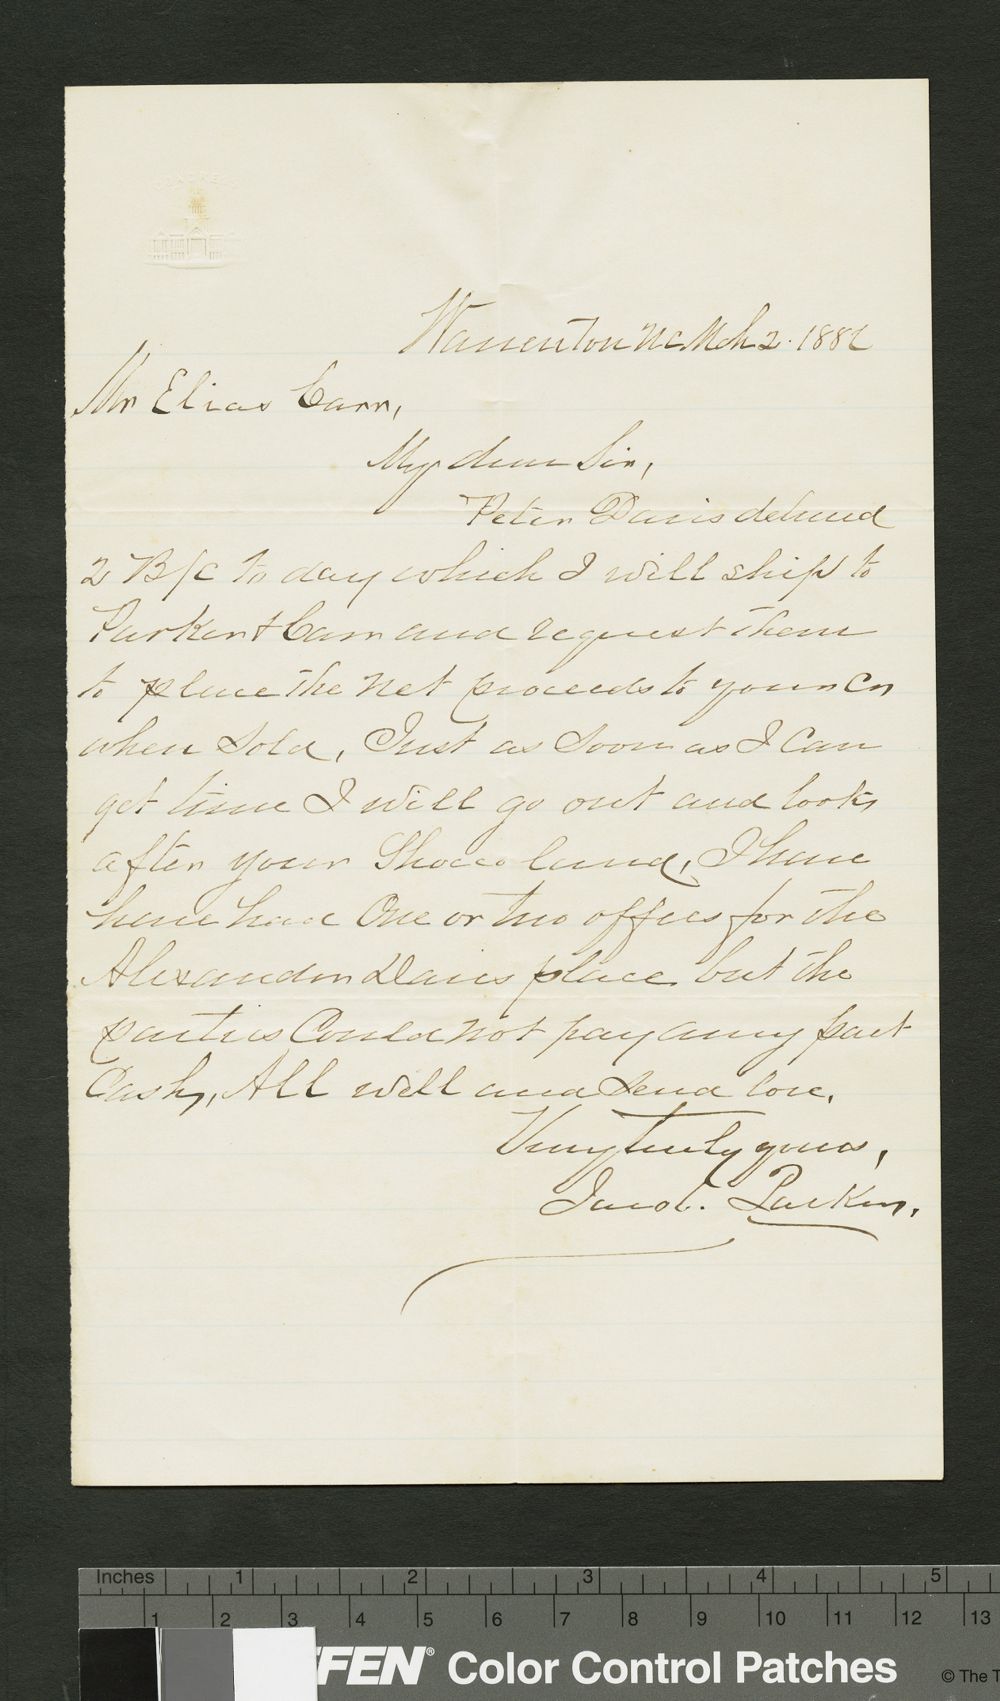 CONGRESS
Warrenton NC Mch 2. 1882
Mr Elias Carr,
My dear Sir,
Peter Davis delivered
2 B/C to day which I will ship to
Parker & Carr and request them
to place the net proceeds to your Cr
when Sold, Just as Soon as I Can
get time I will go out and look
after your Shocco land, I have
have had One or two offers for the
Alexander Davis place but the
parties Could not pay any part
Cash, All well and Send love.
Very truly yours,
Jacob. Parker.
Inches 1 2 3 4 5
1 2 3 4 5 6 7 8 9 10 11 12 13
FFEN® Color Control Patches © The T